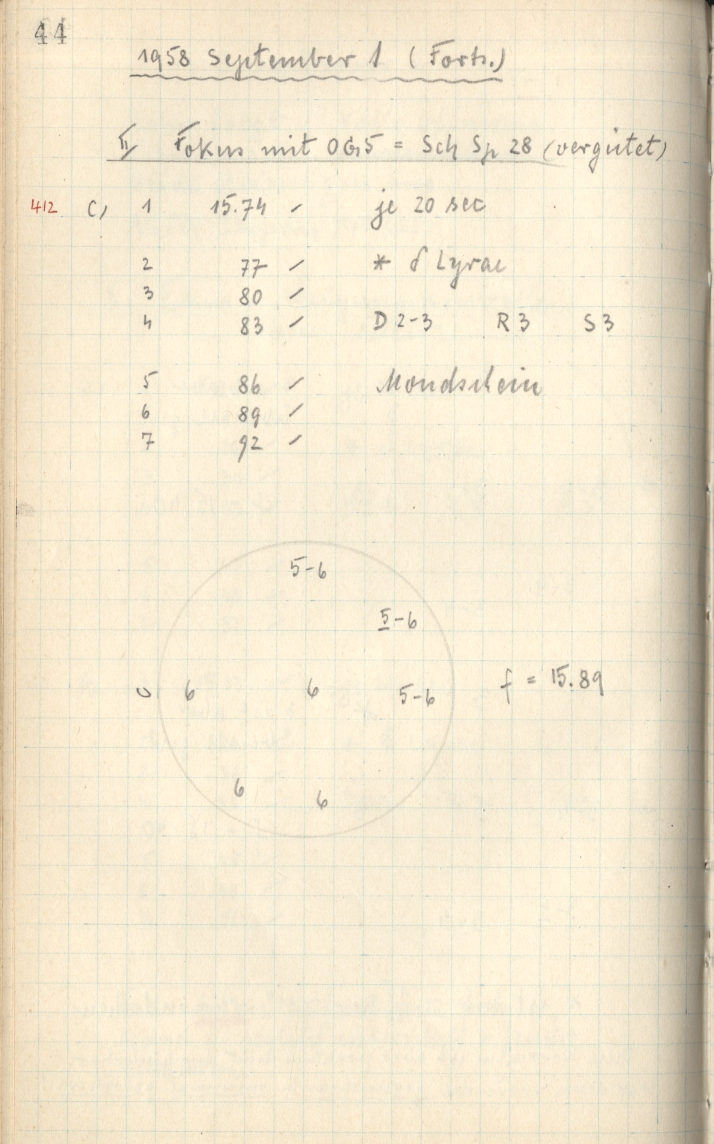 44
1958 September 1 (Forts.)
II, Fokus mit OG5 = Sch Sp 28 (vergütet)
412 c, 1 15.74 ✓ je 20 sec
2 77 ✓ * δ Lyrae
3 80 ✓
4 83 ✓ D 2-3 R 3 S 3
5 86 ✓ Mondschein
6 89 ✓
7 92 ✓
5-6
5-6
6 6 5-6 f = 15.89
6 6